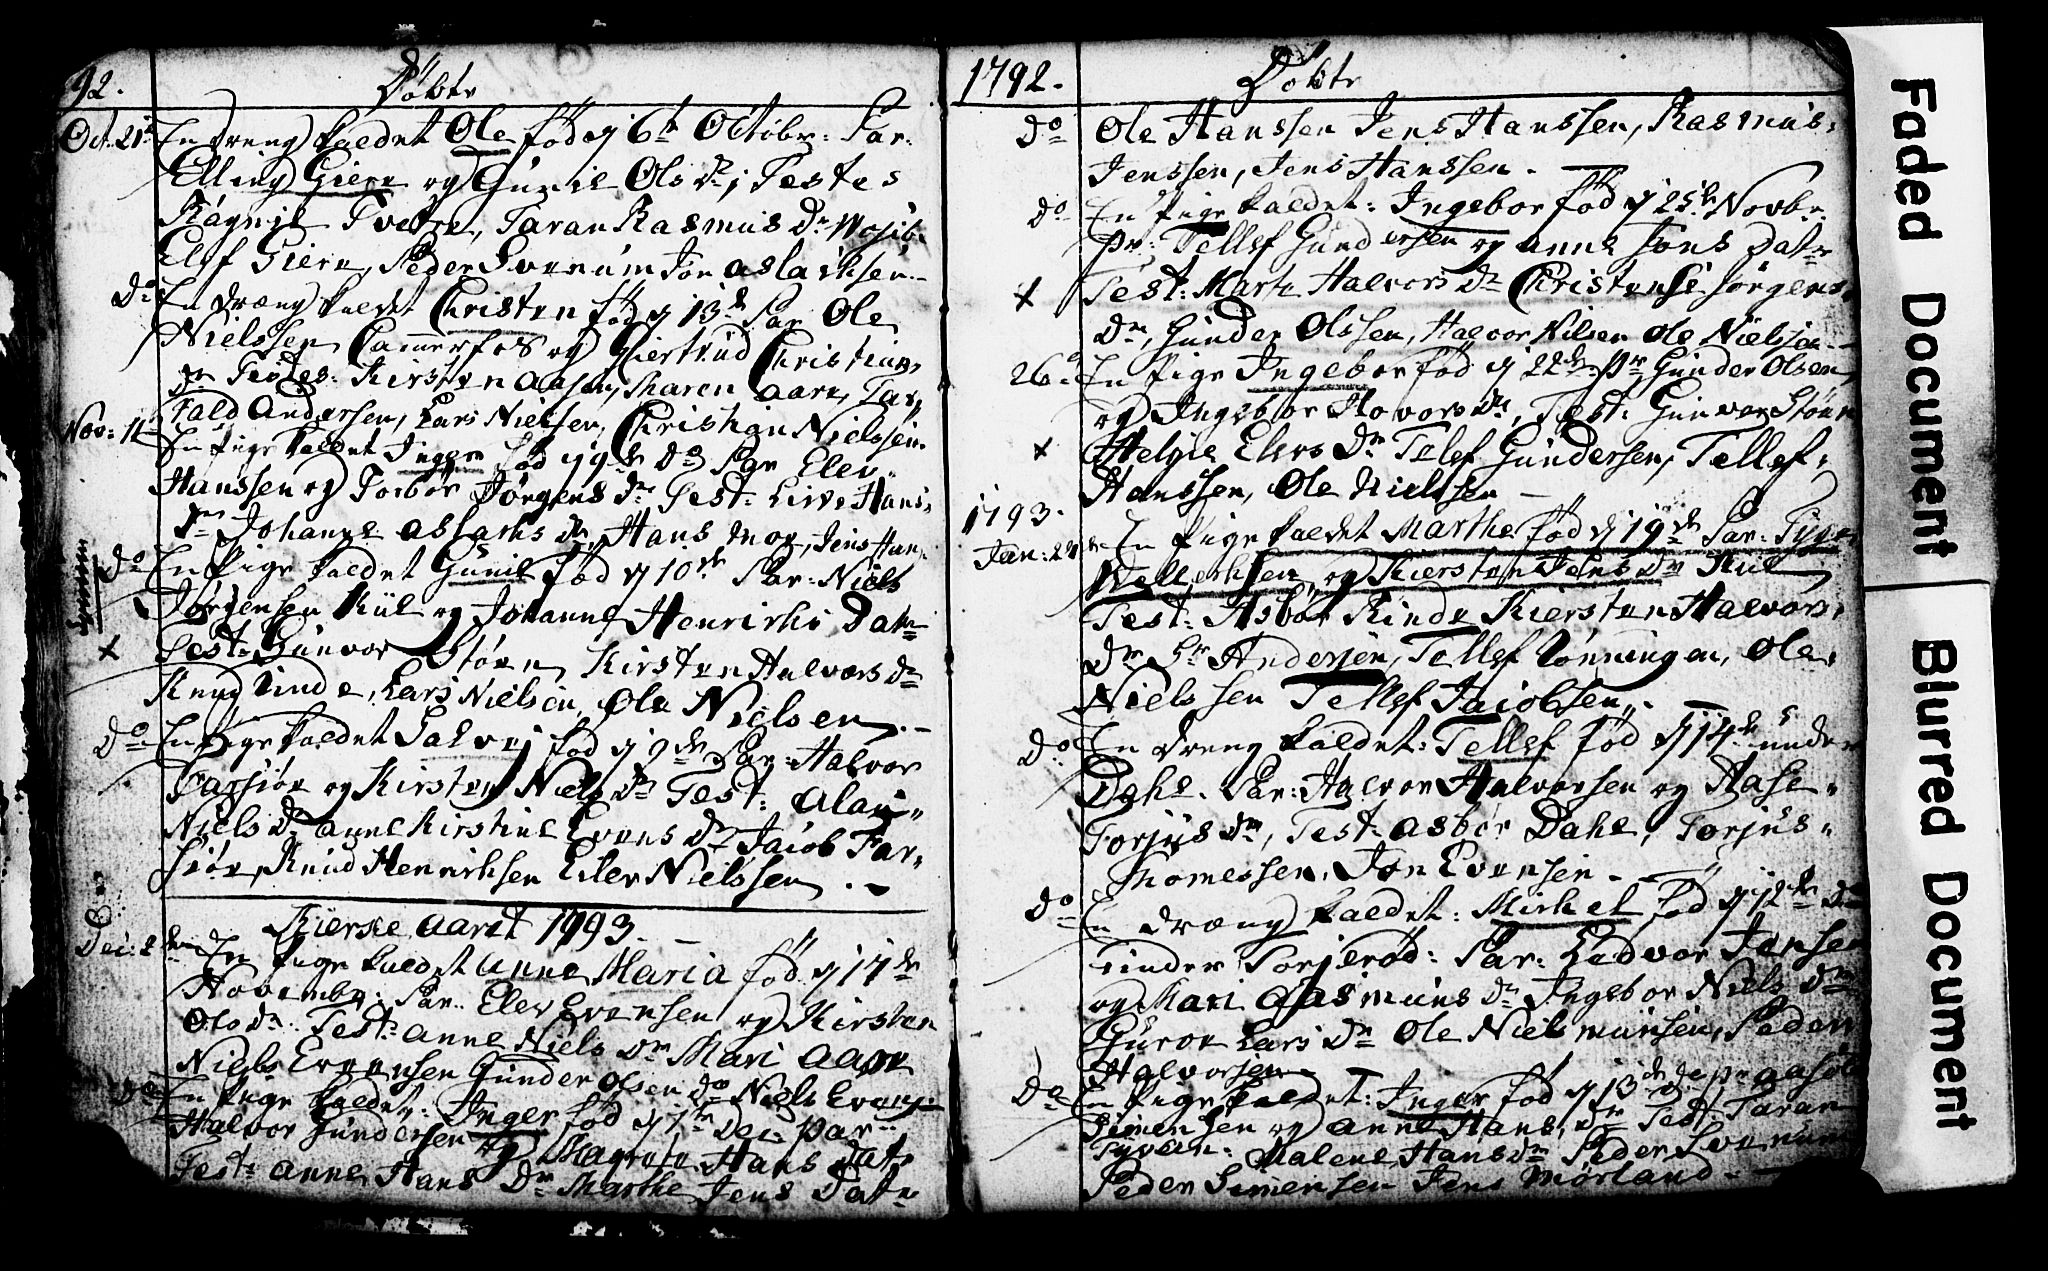 92. Döbte
Oct. 21 En dreng kaldet Ole fød d 6te Octobr: Par.
Elling Giere og Gunil Ols Dr, Testes
Ragnil Tvetre, Taran Rasmus Dr
Elef Giere, Peder Svenum Jon Aslaksen.
Do En dræng kaldet Christen fød d 13de Par Ole
Nielssen og Giertrud Christians
Dr Testes. Kirsten Aasen, Maren Aare, Tar-
fald Andersen, Lars Nielsen, Christian Nielssen.
Nov: 11 En Pige kaldet Inger fød d 9de Do Par Elev
Hanssen og Torbor Jörgens Dr Test: Live Hans
Dr Johanne Aslachs Dr, Hans Moe, Jens Han
Do En Pige kaldet Gunil fød d 10de Par: Niels
Jörgensen Kiil og Johanne Henrichs Datr
Test: Gunvor Støen, Kirsten Halvors Dr
Knud Linde, Lars Nielsen, Ole Nielsen.
Do En Pige kaldet Salvej fød d 9de Par: Halvor
Farsjöe og Kirsten Niels Dr Test:
Niels Dr Anne Kirstine Evens Dr Jacob Far-
siöe, Knud Henrichsen Elev Nielssen.
Kierke Aaret 1793.
Dec: 2 En Pige kaldet Anne Maria fød d 17de
Novembr: Par: Elev Evensen og Kirsten
Ols Dr. Test: Anne Niels Dr Mari Aare
Niels Evensen Gunder Olsen Do Niels Evens:
Do En Pige kaldet: Inger fød d 7de Dec: Par:
Halvor Gundersen og Magrete Hans Dat
Test: Anne Hans Dr Marthe Jens Datr
1792. Döbte
Do Ole Hanssen Jens Hanssen, Rasmus
Jenssen, Jens Hanssen.
Do En Pige kaldet: Ingebor fød d 25de Novbr.
Pr: Tellef Gundersen og Anne Jons Datr
Test: Marte Halvors Dr Christense Jörgens
Dr, Gunder Olssen, Halvor Nilsen Ole Nielsen
26. En Pige Ingebor fød d 22de Pr Gunder Olsen
og Ingebor Hovors Dr, Test: Gunvor Støen
Helgie Elevs Dr Telef Gundersen, Tellef
Hanssen, Ole Nielssen
1793.
Jan: En Pige kaldet Marthe fød d 19de Par:
Wellerksen og Kiersten Jens Dr Kiil
Test: Asbor Rinde Kiersten Halvors
Dr Andersen, Tellef Lönningen, Ole
Nielssen Tellef Jacobsen.
Do En Dreng kaldet: Tellef fød d 14de under
Dahe. Par: Halvor Halvorsen og Aase
Torjus Dr, Test: Asbor Dahe, Torjus
Thomessen, Jon Evensen.
Do En Dræng kaldet: Mickel fød d 12de
under Torjerød: Par: Hadvor Jonsen
og Mari Aasmuns Dr Ingebor Niels Dr
Guroe Lars Dr Ole Niels Peder
Halvorsen
Do En Pige kaldet: Inger fød d 13de
Simensen og Anne Hans, Dr Test Taran
Malene Hans Dr Peder Svenum
Peder Simensen Jens Mørland
Faded Document
Blurred Document